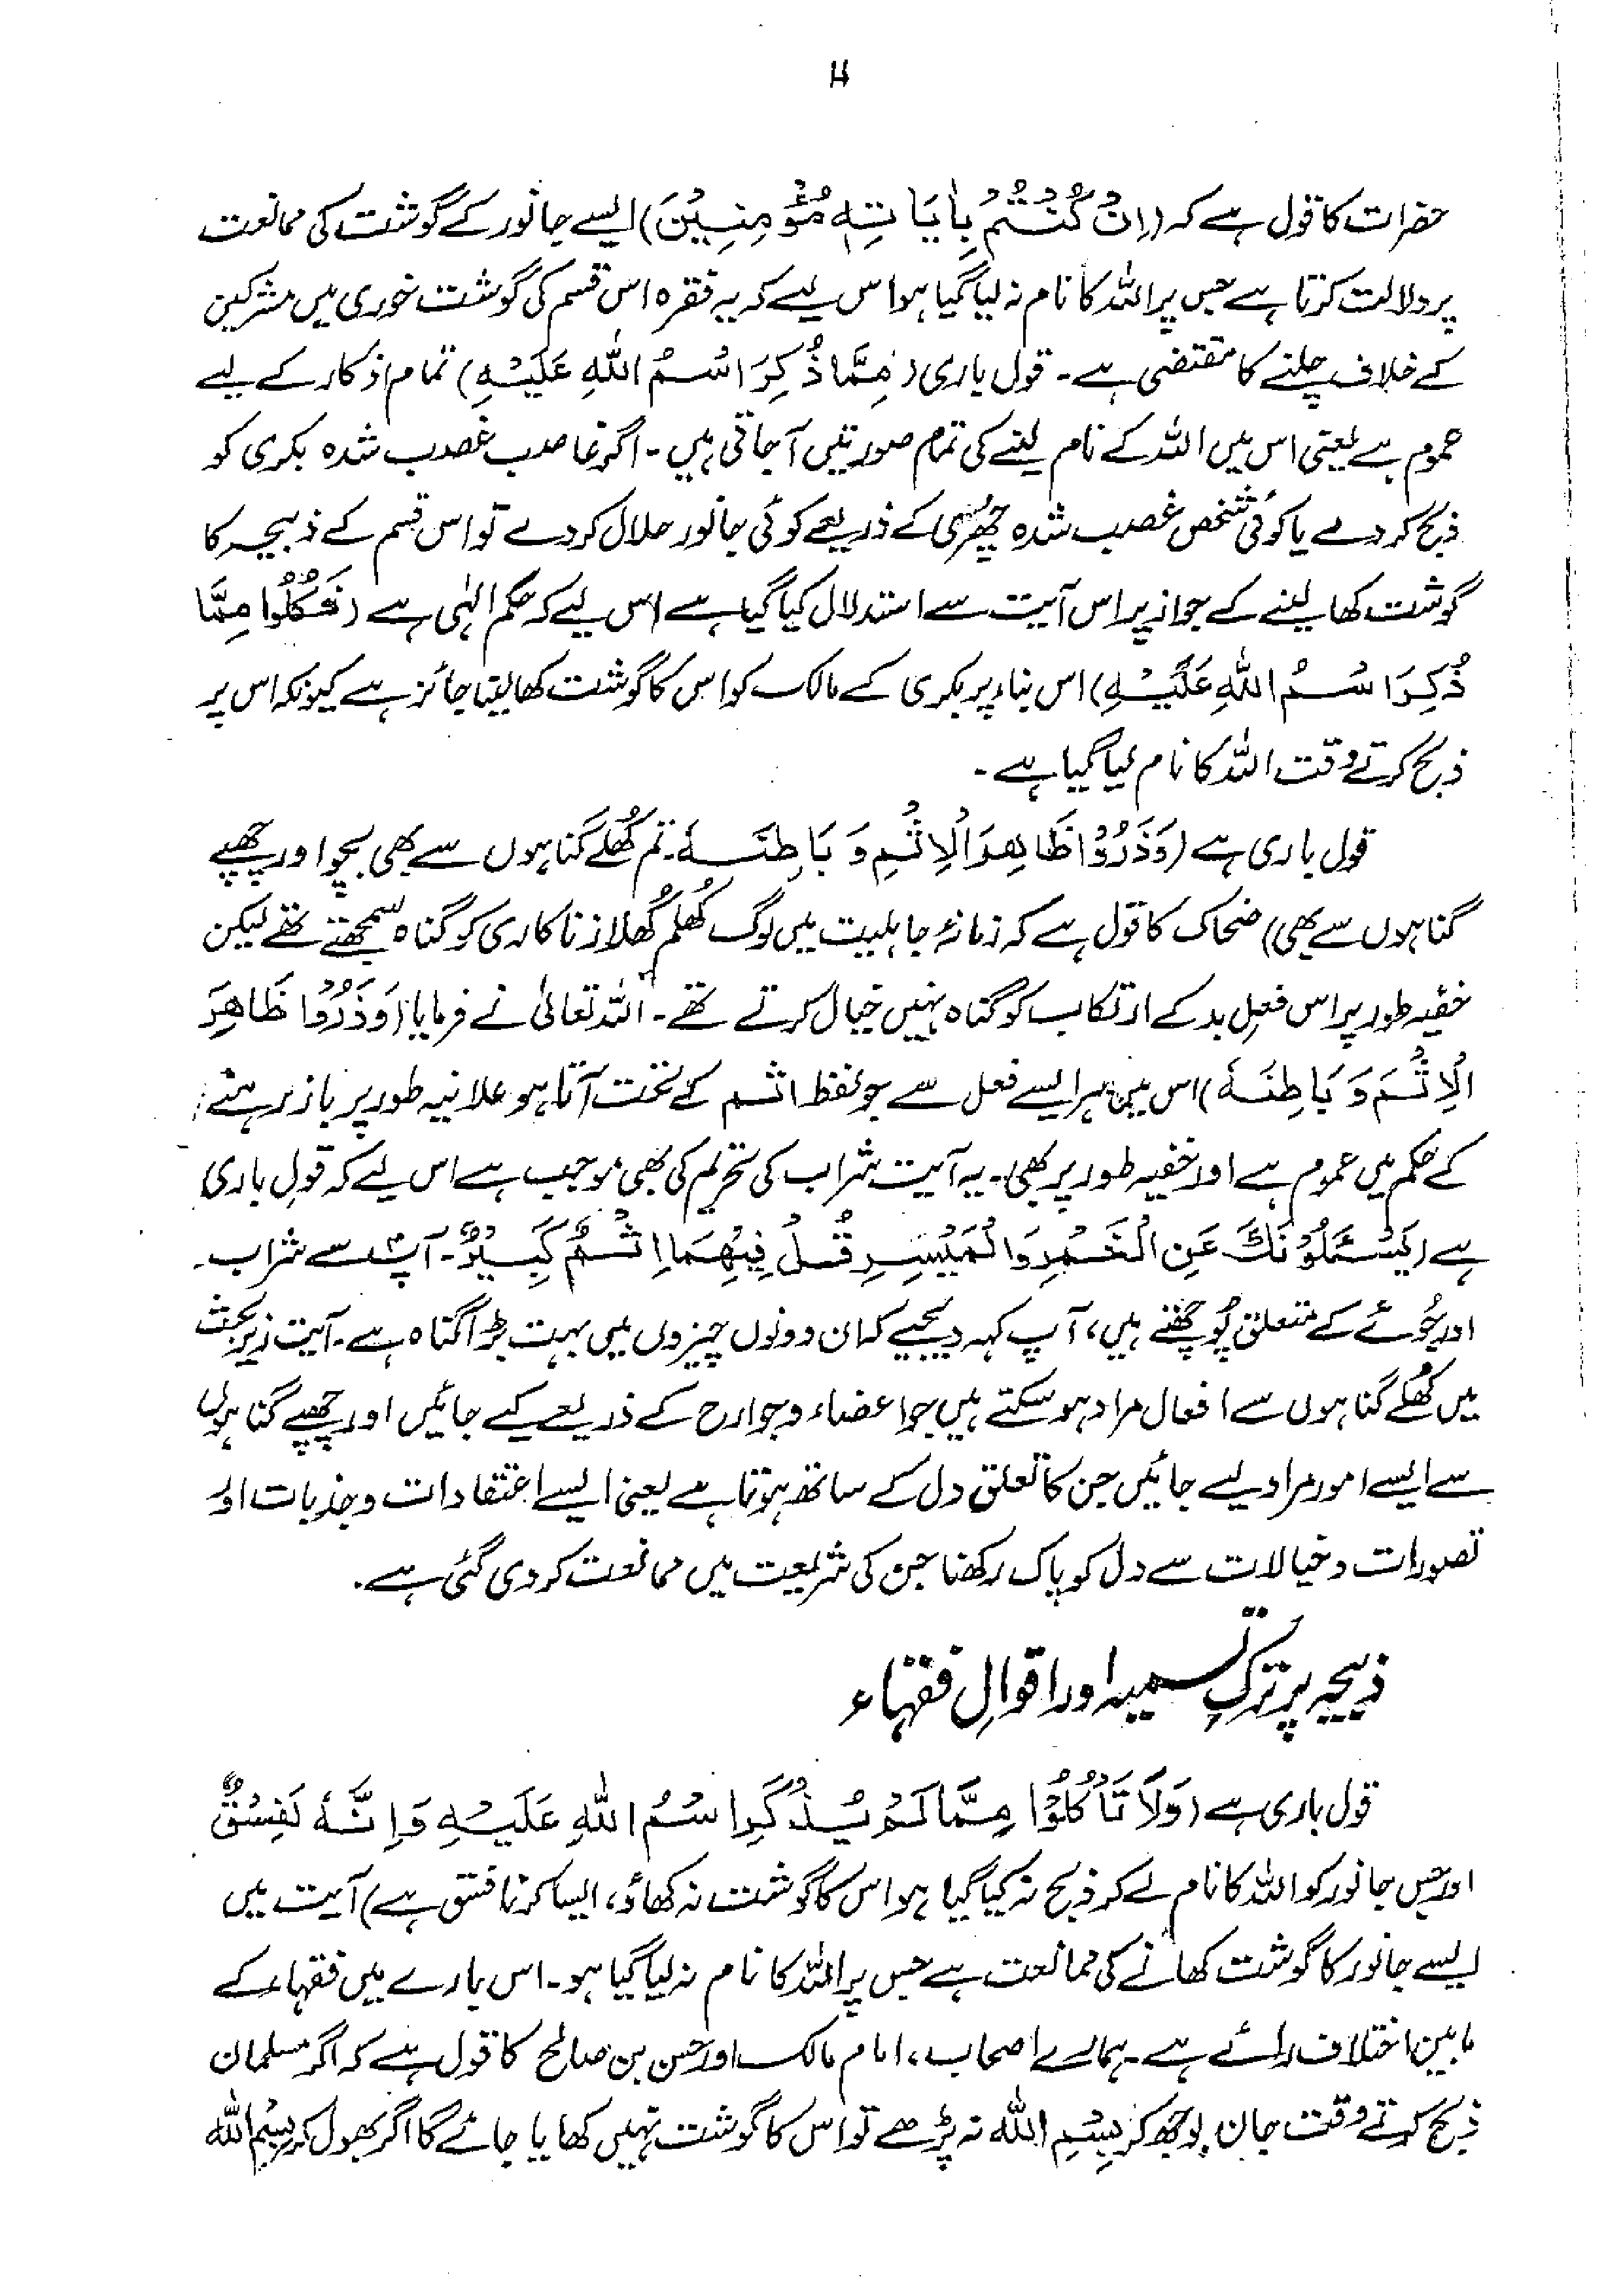 ۱۱
حضرات کا قول ہے کہ (اِنْ كُنْتُمْ بِاٰيَاتِهٖ مُؤْمِنِيْنَ) ایسے جانور کے گوشت کی ممانعت
پر دلالت کرتا ہے جس پر اللہ کا نام نہ لیا گیا ہو اس لیے کہ یہ فقرہ اس قسم کی گوشت خوری میں مشرکین
کے خلاف چلنے کا مقتضی ہے۔ قول باری (مِمَّا ذُكِرَ اسْمُ اللهِ عَلَيْهِ) تمام اذکار کے لیے
عموم ہے یعنی اس میں اللہ کے نام لینے کی تمام صورتیں آ جاتی ہیں۔ اگر غاصب غصب شدہ بکری کو
ذبح کر دے یا کوئی شخص غصب شدہ چھُری کے ذریعے کوئی جانور حلال کر دے تو اس قسم کے ذبیحہ کا
گوشت کھا لینے کے جواز پر اس آیت سے استدلال کیا گیا ہے اس لیے کہ حکم الٰہی ہے (فَكُلُوْا مِمَّا
ذُكِرَ اسْمُ اللهِ عَلَيْهِ) اس بناء پر بکری کے مالک کو اس کا گوشت کھا لینا جائز ہے کیونکہ اس پر
ذبح کرتے وقت اللہ کا نام لیا گیا ہے۔
قول باری ہے (وَذَرُوْا ظَاهِرَ الْاِثْمِ وَ بَاطِنَهٗ۔ تم کُھلے گناہوں سے بھی بچو اور چھپے
گناہوں سے بھی) ضحاک کا قول ہے کہ زمانۂ جاہلیت میں لوگ کُھلم کُھلا زنا کاری کو گناہ سمجھتے تھے لیکن
خفیہ طور پر اس فعلِ بد کے ارتکاب کو گناہ نہیں خیال کرتے تھے۔ اللہ تعالیٰ نے فرمایا (وَذَرُوْا ظَاهِرَ
الْاِثْمَ وَ بَاطِنَهٗ) اس میں ہر ایسے فعل سے جو لفظ اثم کے تحت آتا ہو علانیہ طور پر باز رہنے
کے حکم میں عموم ہے اور خفیہ طور پر بھی۔ یہ آیت شراب کی تحریم کی بھی موجب ہے اس لیے کہ قولِ باری
ہے (يَسْئَلُوْنَكَ عَنِ الْخَمْرِ وَالْمَيْسِرِ قُلْ فِيْهِمَا اِثْمٌ كَبِيْرٌ۔ آپؐ سے شراب
اور جُوئے کے متعلق پُوچھتے ہیں، آپ کہہ دیجیے کہ ان دونوں چیزوں میں بہت بڑا گناہ ہے۔ آیت زیر بحث
میں کُھلے گناہوں سے افعال مراد ہو سکتے ہیں جو اعضاء و جوارح کے ذریعے کیے جائیں اور چھپے گناہوں
سے ایسے امور مراد لیے جائیں جن کا تعلق دل کے ساتھ ہوتا ہے یعنی ایسے اعتقادات و جذبات اور
تصورات و خیالات سے دل کو پاک رکھنا جن کی شریعت میں ممانعت کر دی گئی ہے۔
ذبیحہ پر ترکِ تسمیہ اور اقوالِ فقہاء
قول باری ہے (وَلَا تَأْكُلُوْا مِمَّا لَمْ يُذْكَرِ اسْمُ اللهِ عَلَيْهِ وَاِنَّهٗ لَفِسْقٌ
اور جس جانور کو اللہ کا نام لے کر ذبح نہ کیا گیا ہو اس کا گوشت نہ کھاؤ، ایسا کرنا فسق ہے) آیت میں
ایسے جانور کا گوشت کھانے کی ممانعت ہے جس پر اللہ کا نام نہ لیا گیا ہو۔ اس بارے میں فقہاء کے
مابین اختلاف رائے ہے۔ ہمارے اصحاب، امام مالک اور حسن بن صالح کا قول ہے کہ اگر مسلمان
ذبح کرتے وقت جان بوجھ کر بِسْمِ اللہ نہ پڑھے تو اس کا گوشت نہیں کھایا جائے گا اگر بھول کر بِسْمِ اللہ